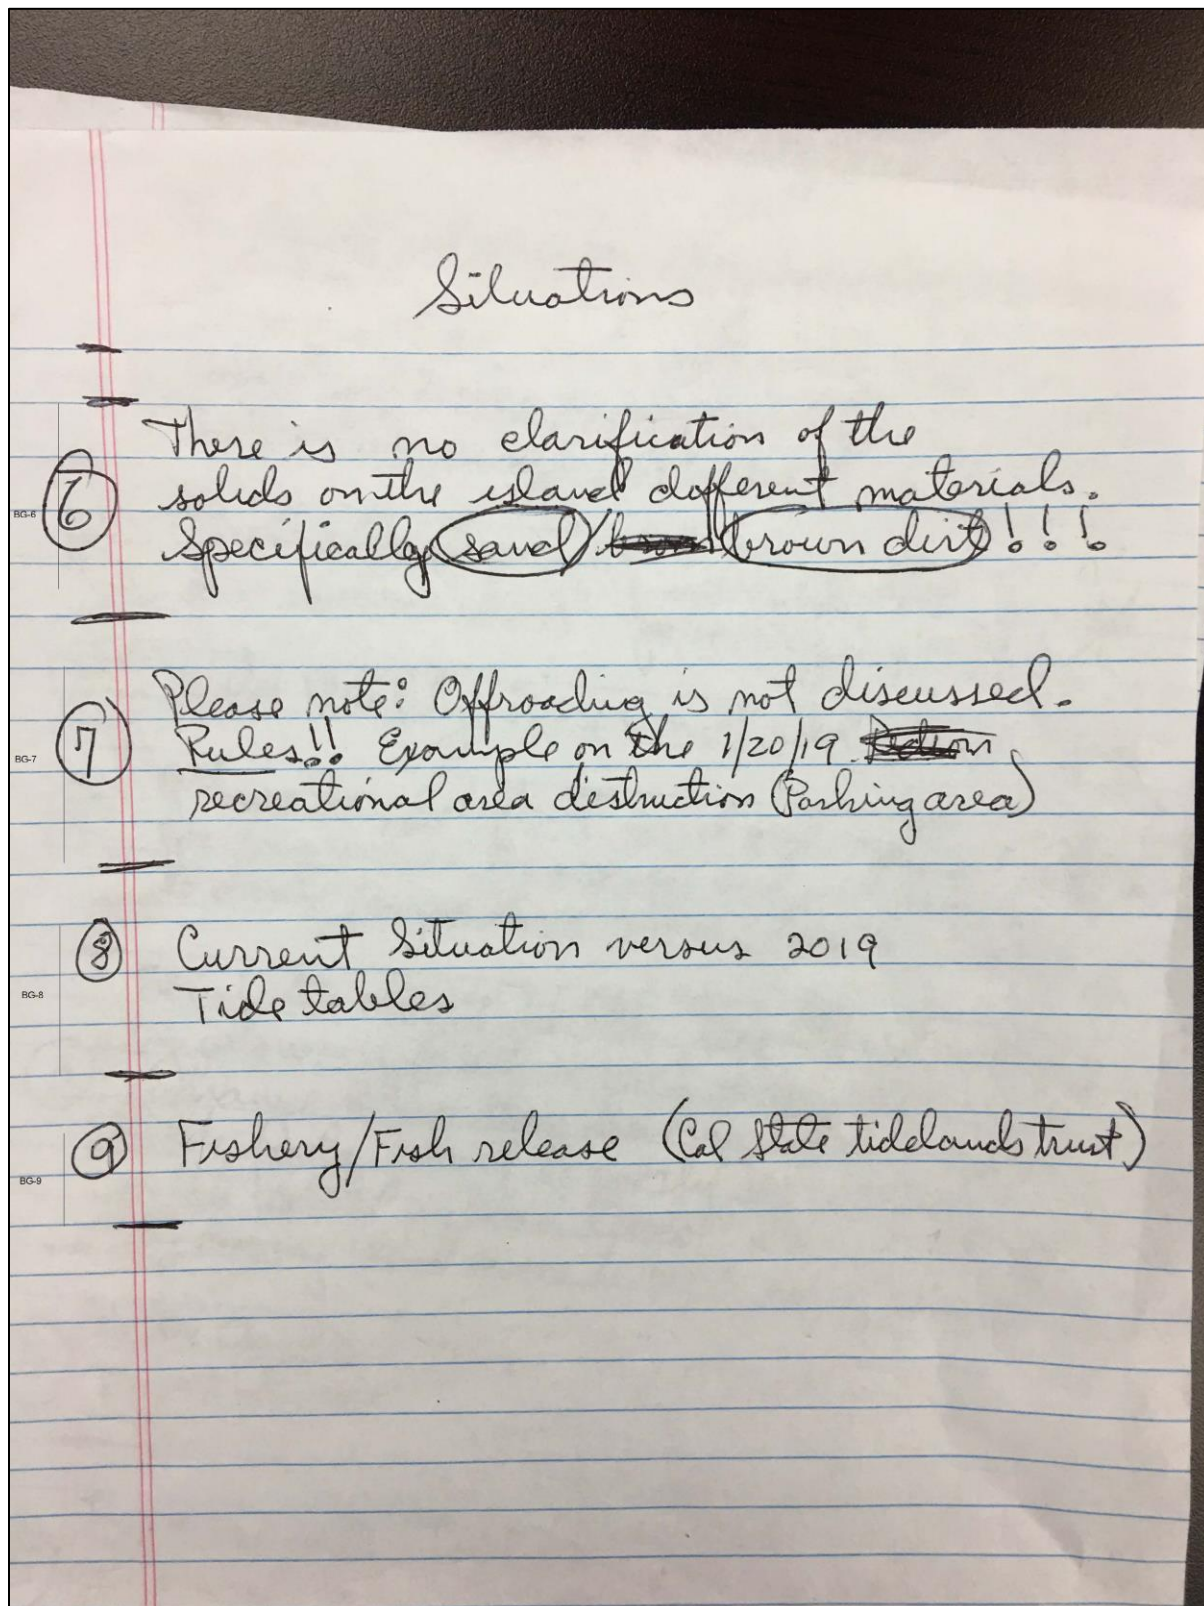 Situations
There is no clarification of the
BG-6 ⑥ solids on the island different materials.
Specifically sand / brown dirt!!!
Please note: Offroading is not discussed.
BG-7 ⑦ Rules!! Example on the 1/20/19
recreational area destruction (Parking area)
⑧ Current Situation versus 2019
BG-8 Tide tables
⑨ Fishery/Fish release (Cal State tidelands trust)
BG-9